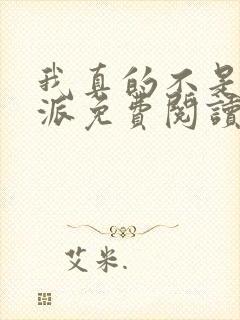 我真的不是
派免費閱讀
艾米.